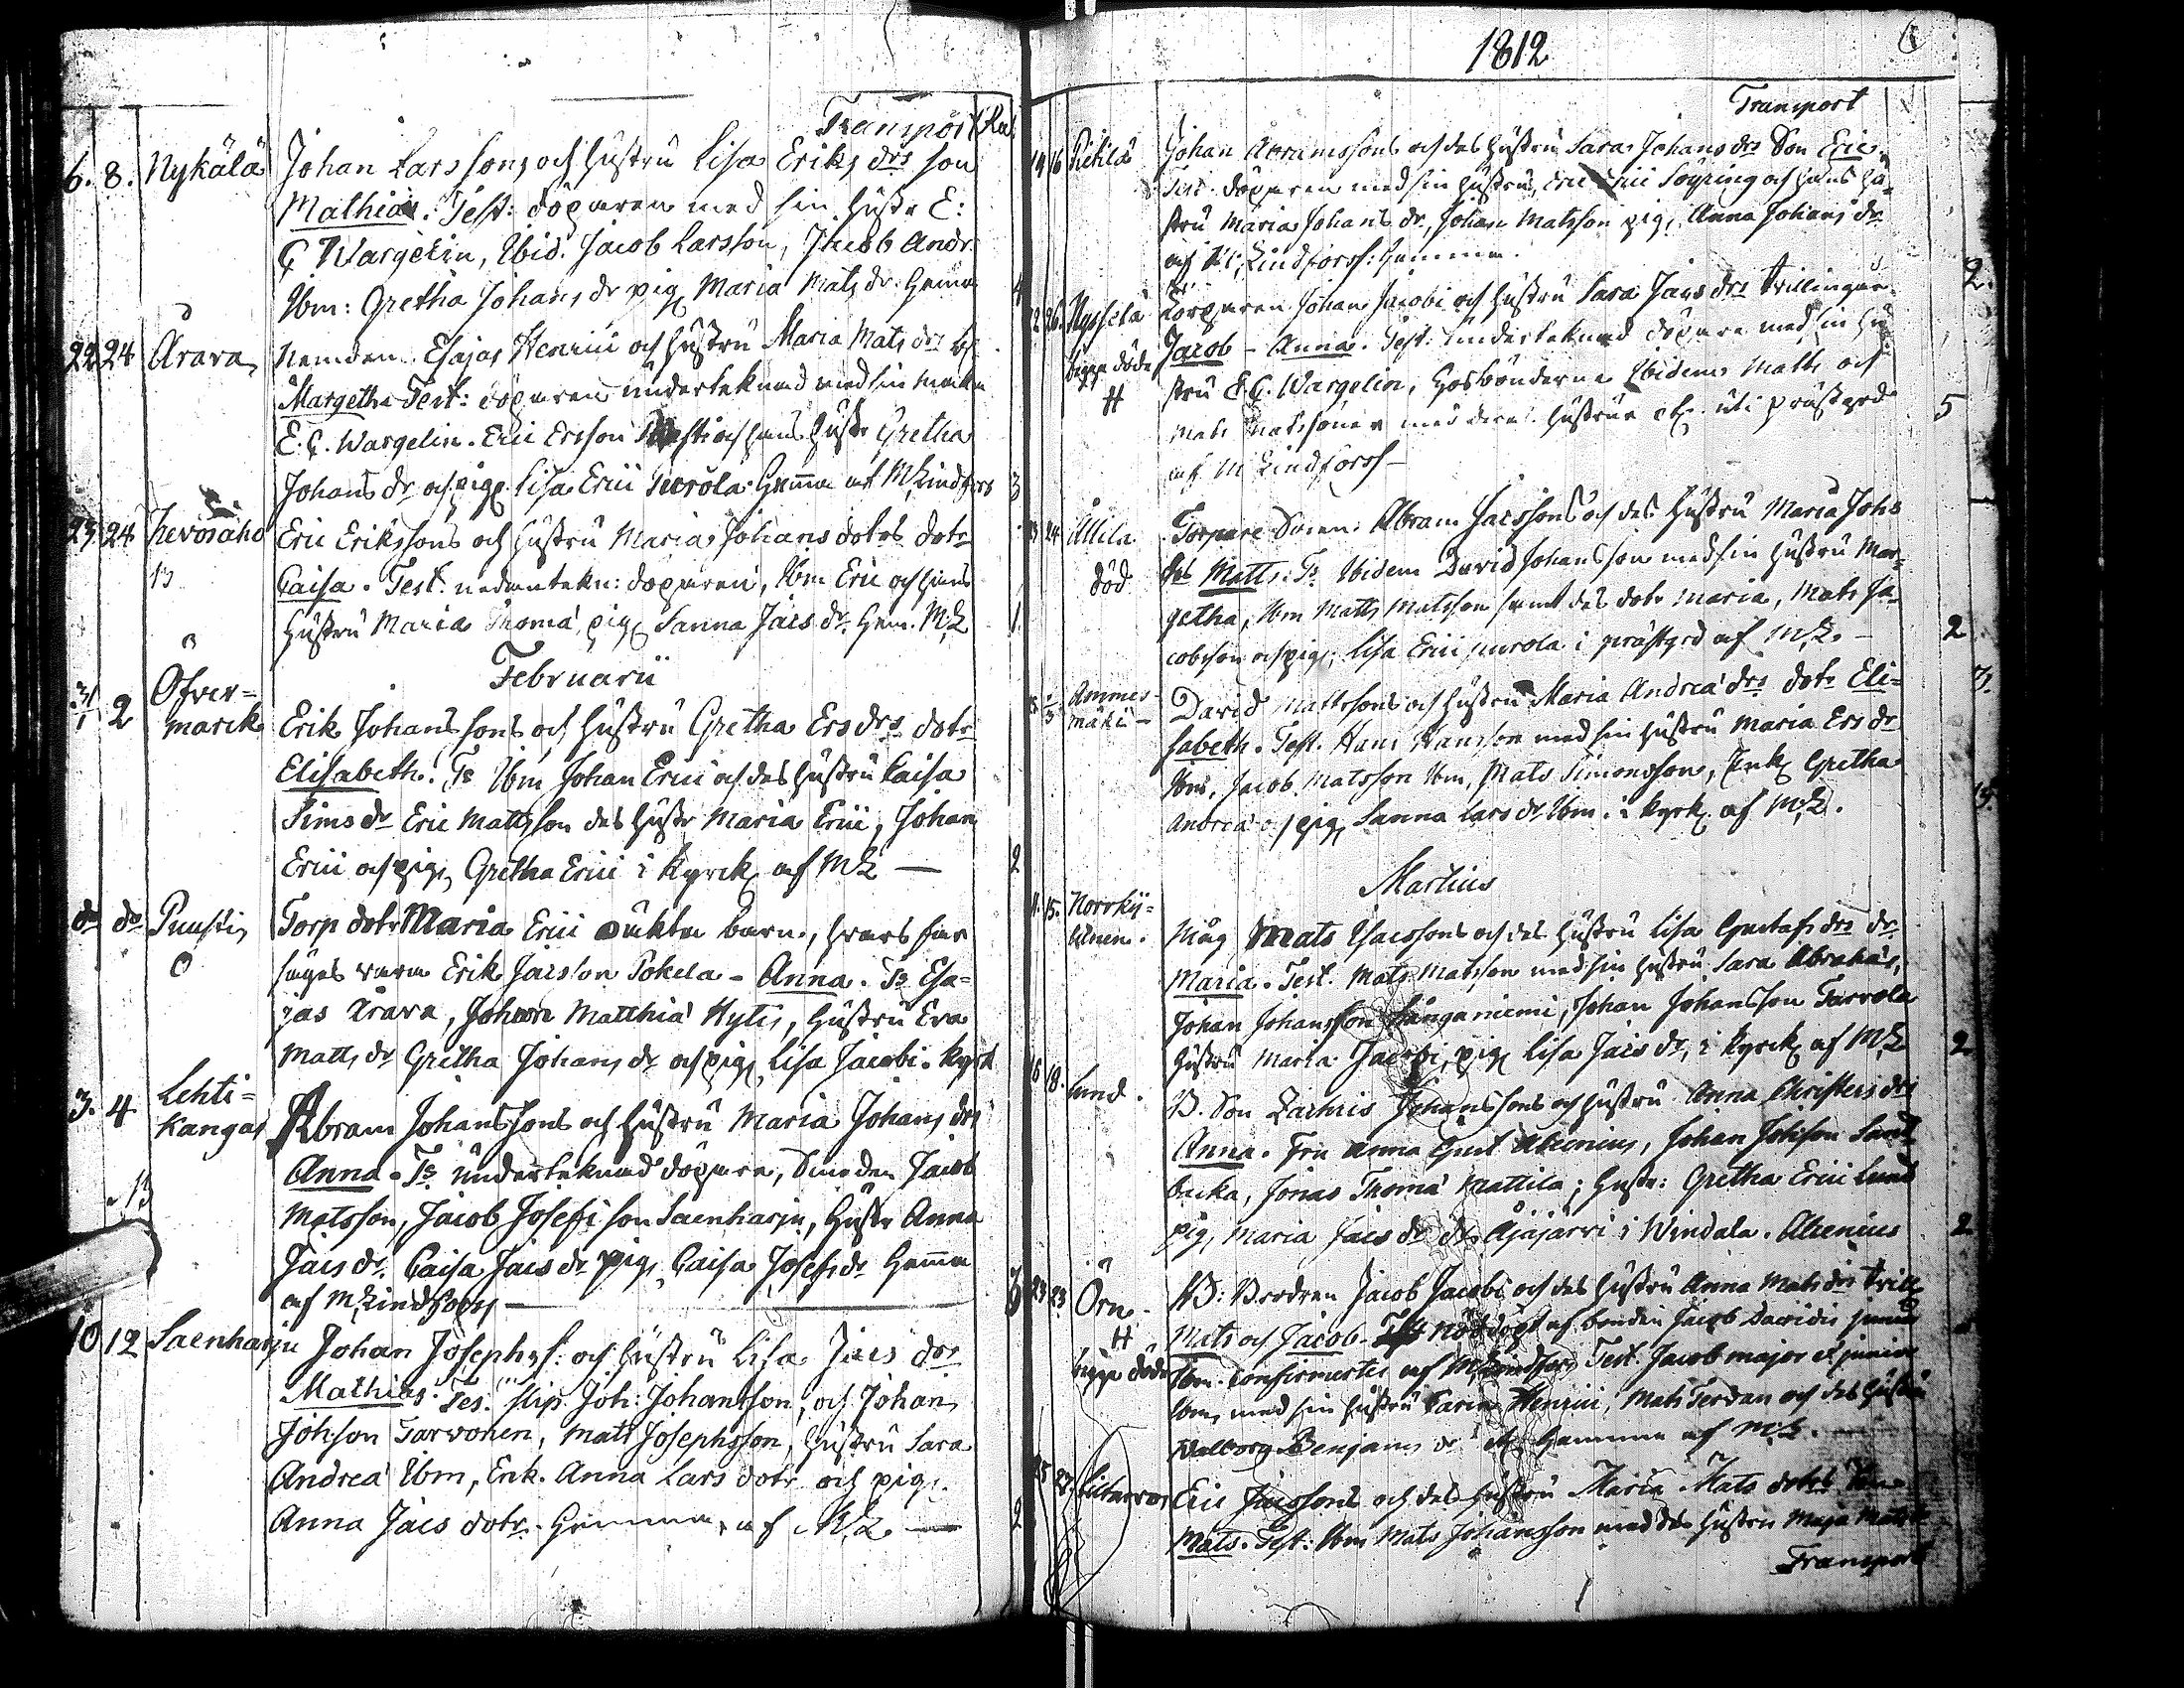 Transport
6. 8. Nykälä Johan Larssons och hustru Lisa Eriks drs son
Mathias. Test: döparen med sin hustr E:
C Wargelin, Ibid. Jacob Larsson, Jacob Andr.
Ibm: Gretha Johans dr pig Maria Mats dr. hemma 4
22 24 Årava Nemden. Esajas Henrici och hustru Maria Mats drs
Margetha Test: döparen underteknad med sin maka
E. C. Wargelin. Eric Ersson och hans hustr Gretha
Johans dr och pig. Lisa Erici Purola. Hemma af M Lindfors 3
23. 24 Kevosaho Eric Erikssons och hustru Maria Johans doters dotr
Caisa. Test. nedantekn: doparen, Ibm Eric och hans
hustru Maria Thomæ, pig Sanna Jacs dr. Hem. ML 1
Februarii
31/1 2 Öfver=
marck Erik Johanssons och hustru Gretha Ers drs dotr
Elisabeth. Ts Ibm Johan Erici och des hustru Caisa
Sims dr Eric Matsson des hustr Maria Erici, Johan
Erici och pig, Gretha Erici i Kyrck af ML — 2
do do Puusti Torp dotr Maria Erici oäkta barn, hvars far
säges vara Erik Jacsson Pokela - Anna. Ts Esa=
jas Årava, Johan Matthiæ Hytis, hustru Eva
Matts dr Gretha Johans dr och pig Lisa Jacobi. Kyrk
3. 4 Lehti=
kangas Abram Johanssons och hustru Maria Johans drs
Anna. Ts undertecknad döpare, Smeden Jacob
Matsson, Jacob Josefsson Saenharju, hustr Anna
Jacs dr. Caisa Jacs dr pig. Caisa Josefs dr Hemma
af M Lindfors — 3
10 12 Saenharju Johan Josephs: och hustru Lisa Jacs drs
Mathias. Tes. Joh: Johansson, och Johan
Johsson Tarvonen, Mats Josephsson, hustru Sara
Andreæ Ibm, Enk. Anna Lars dotr och pig.
Anna Jacs dotr. Hemma, af ML — 2
1812
Transport
14 16 Pietilä Johan Abramssons och des hustru Sara Johans drs Son Eric.
Test. döparen med sin hustru, Eric Söyring och hans hu
stru Maria Johans dr, Johan Matsson pig, Anna Johans dr
af Lindforss: Hemma. 2.
26. Nyssölä Torparen Johan Jacobi och hustru Sara Jacs drs tvillingar
bägge döda Jacob - Anna. Test: undertecknad döpare med sin hu
stru E. C. Wargelin, Gosbönderne Ibidem Matts och
Mats Matssöner med deras hustrur uti prästgrd 5
af M Lindforss —
23 24 Attila Torpare Sonen: Abram Jacssons och des hustru Maria Johs
död drs Matts: Ts Ibidem David Johansson med sin hustru Mar=
getha, Ibm Matts Matsson samt des dotr Maria, Mats Ja=
cobsson och pig, Lisa Erici purola i prästgrd af ML. — 2
Ammes-
mäki David Mattssons och hustru Maria Andreæ drs dotr Eli= 3.
sabeth. Test. Hans Hansson med sin hustru Maria Ers dr
Ibm, Jacob Matsson Ibm, Mats Simonsson, Enk Gretha
Andreæ pig Sanna Lars dr Ibm. i kyrk af ML.
Martius
11. 15. Norrky=
Måg Mats Isacssons och des hustru Lisa Gustafs drs dr
Maria. Test. Mats Matsson med sin hustru Sara Abraha,
Johan Johansson Långaniemi, Johan Johansson Tarvola
hustru Maria Jacobi, pig Lisa Jacs dr, i kyrck af ML 2
16 18. Lund. B. Son Zachris Johanssons och hustru Anna Christers drs
Anna. Fru Anna Alcenius, Johan Johsson Sand
backa, Jonas Thomæ Mattila; hustr: Gretha Erici Lund
pig, Maria Jacs dr Äjäjärvi i Windala. Alcenius 2
23 23 Örn. B: Brodren Jacob Jacobi och des hustru Anna Mats drs tvill
Mats och Jacob. nöddöpt af bonden Jacob Davidis
bägge döda Ibm. confirmertes af M Lindfors Test. Jacob major et junior
Ibm, med sin hustru Carin Henrici, Mats Terdan och des hustru
Walborg Benjams dr Hemma af ML.
25 27. Eric Jacssons och des hustru Maria Mats doters
Mats. Test: Ibm Mats Johansson med des hustru Maja Mats
Transport